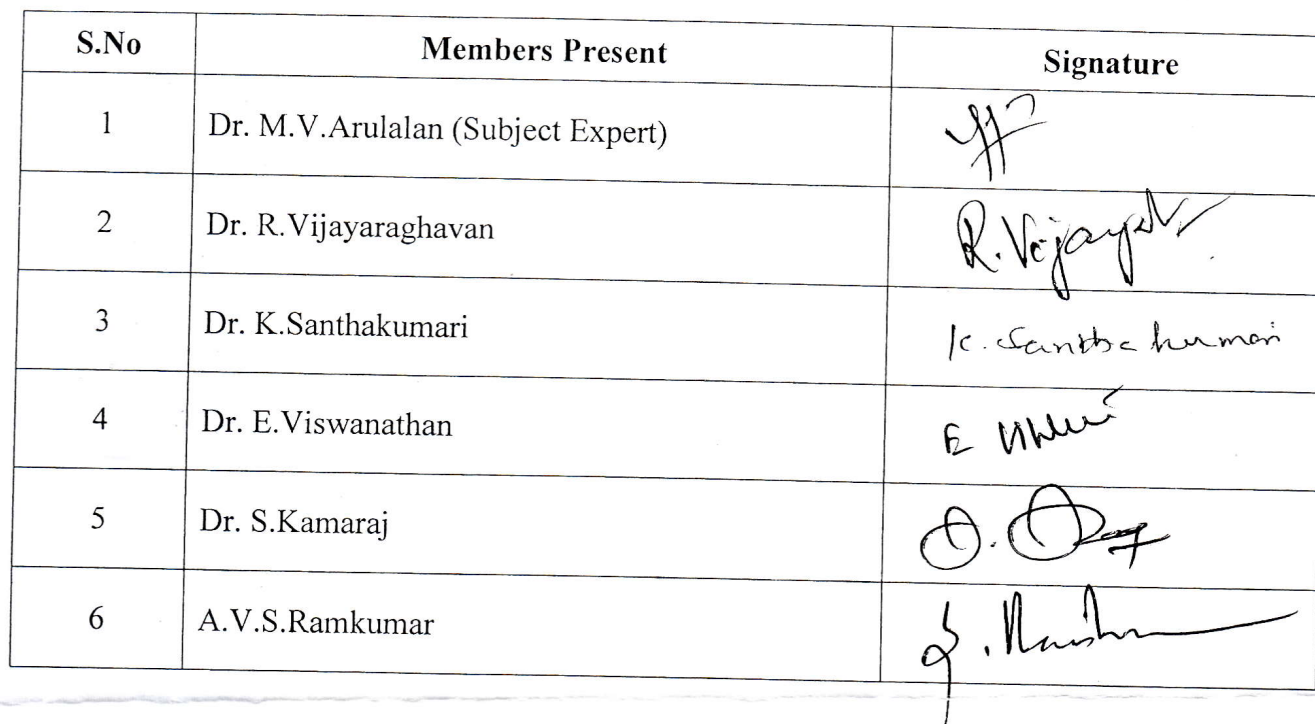 S.No Members Present Signature
1 Dr. M.V.Arulalan (Subject Expert)
2 Dr. R.Vijayaraghavan R.Vijayar
3 Dr. K.Santhakumari K. Santhakumari
4 Dr. E.Viswanathan E
5 Dr. S.Kamaraj
6 A.V.S.Ramkumar